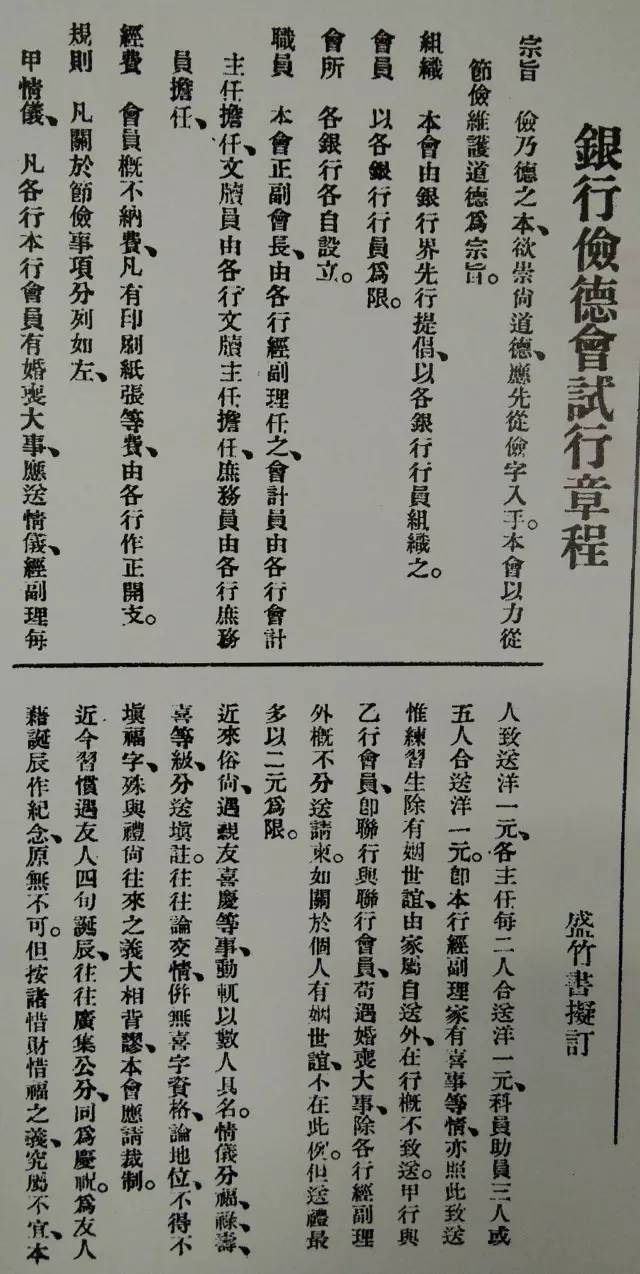 銀行儉德會試行章程
盛竹書擬訂
宗旨　儉乃德之本、欲崇尙道德、應先從儉字入手。本會以力從
節儉維護道德爲宗旨。
組織　本會由銀行界先行提倡、以各銀行行員組織之。
會員　以各銀行行員爲限。
會所　各銀行各自設立。
職員　本會正副會長、由各行經副理任之、會計員由各行會計
主任擔任、文牘員由各行文牘主任擔任、庶務員由各行庶務
員擔任、
經費　會員槪不納費、凡有印刷紙張等費、由各行作正開支。
規則　凡關於節儉事項分列如左、
甲情儀、　凡各行本行會員有婚喪大事、應送情儀、經副理每
人致送洋一元、各主任每二人合送洋一元、科員助員三人或
五人合送洋一元。卽本行經副理家有喜事等情、亦照此致送
惟練習生除有姻世誼、由家屬自送外、在行槪不致送。甲行與
乙行會員、卽聯行與聯行會員、苟遇婚喪大事、除各行經副理
外槪不分送請柬。如關於個人有姻世誼、不在此例。但送禮最
多以二元爲限。
近來俗尙、遇親友喜慶等事、動輒以數人具名。情儀分福、祿、壽、
喜等級、分送塡註。往往論交情、併無喜字資格、論地位、不得不
塡福字、殊與禮尙往來之義大相背謬、本會應請裁制。
近今習慣遇友人四旬誕辰、往往廣集公分、同爲慶祝。爲友人
藉誕辰作紀念、原無不可。但按諸惜財惜福之義、究屬不宜、本